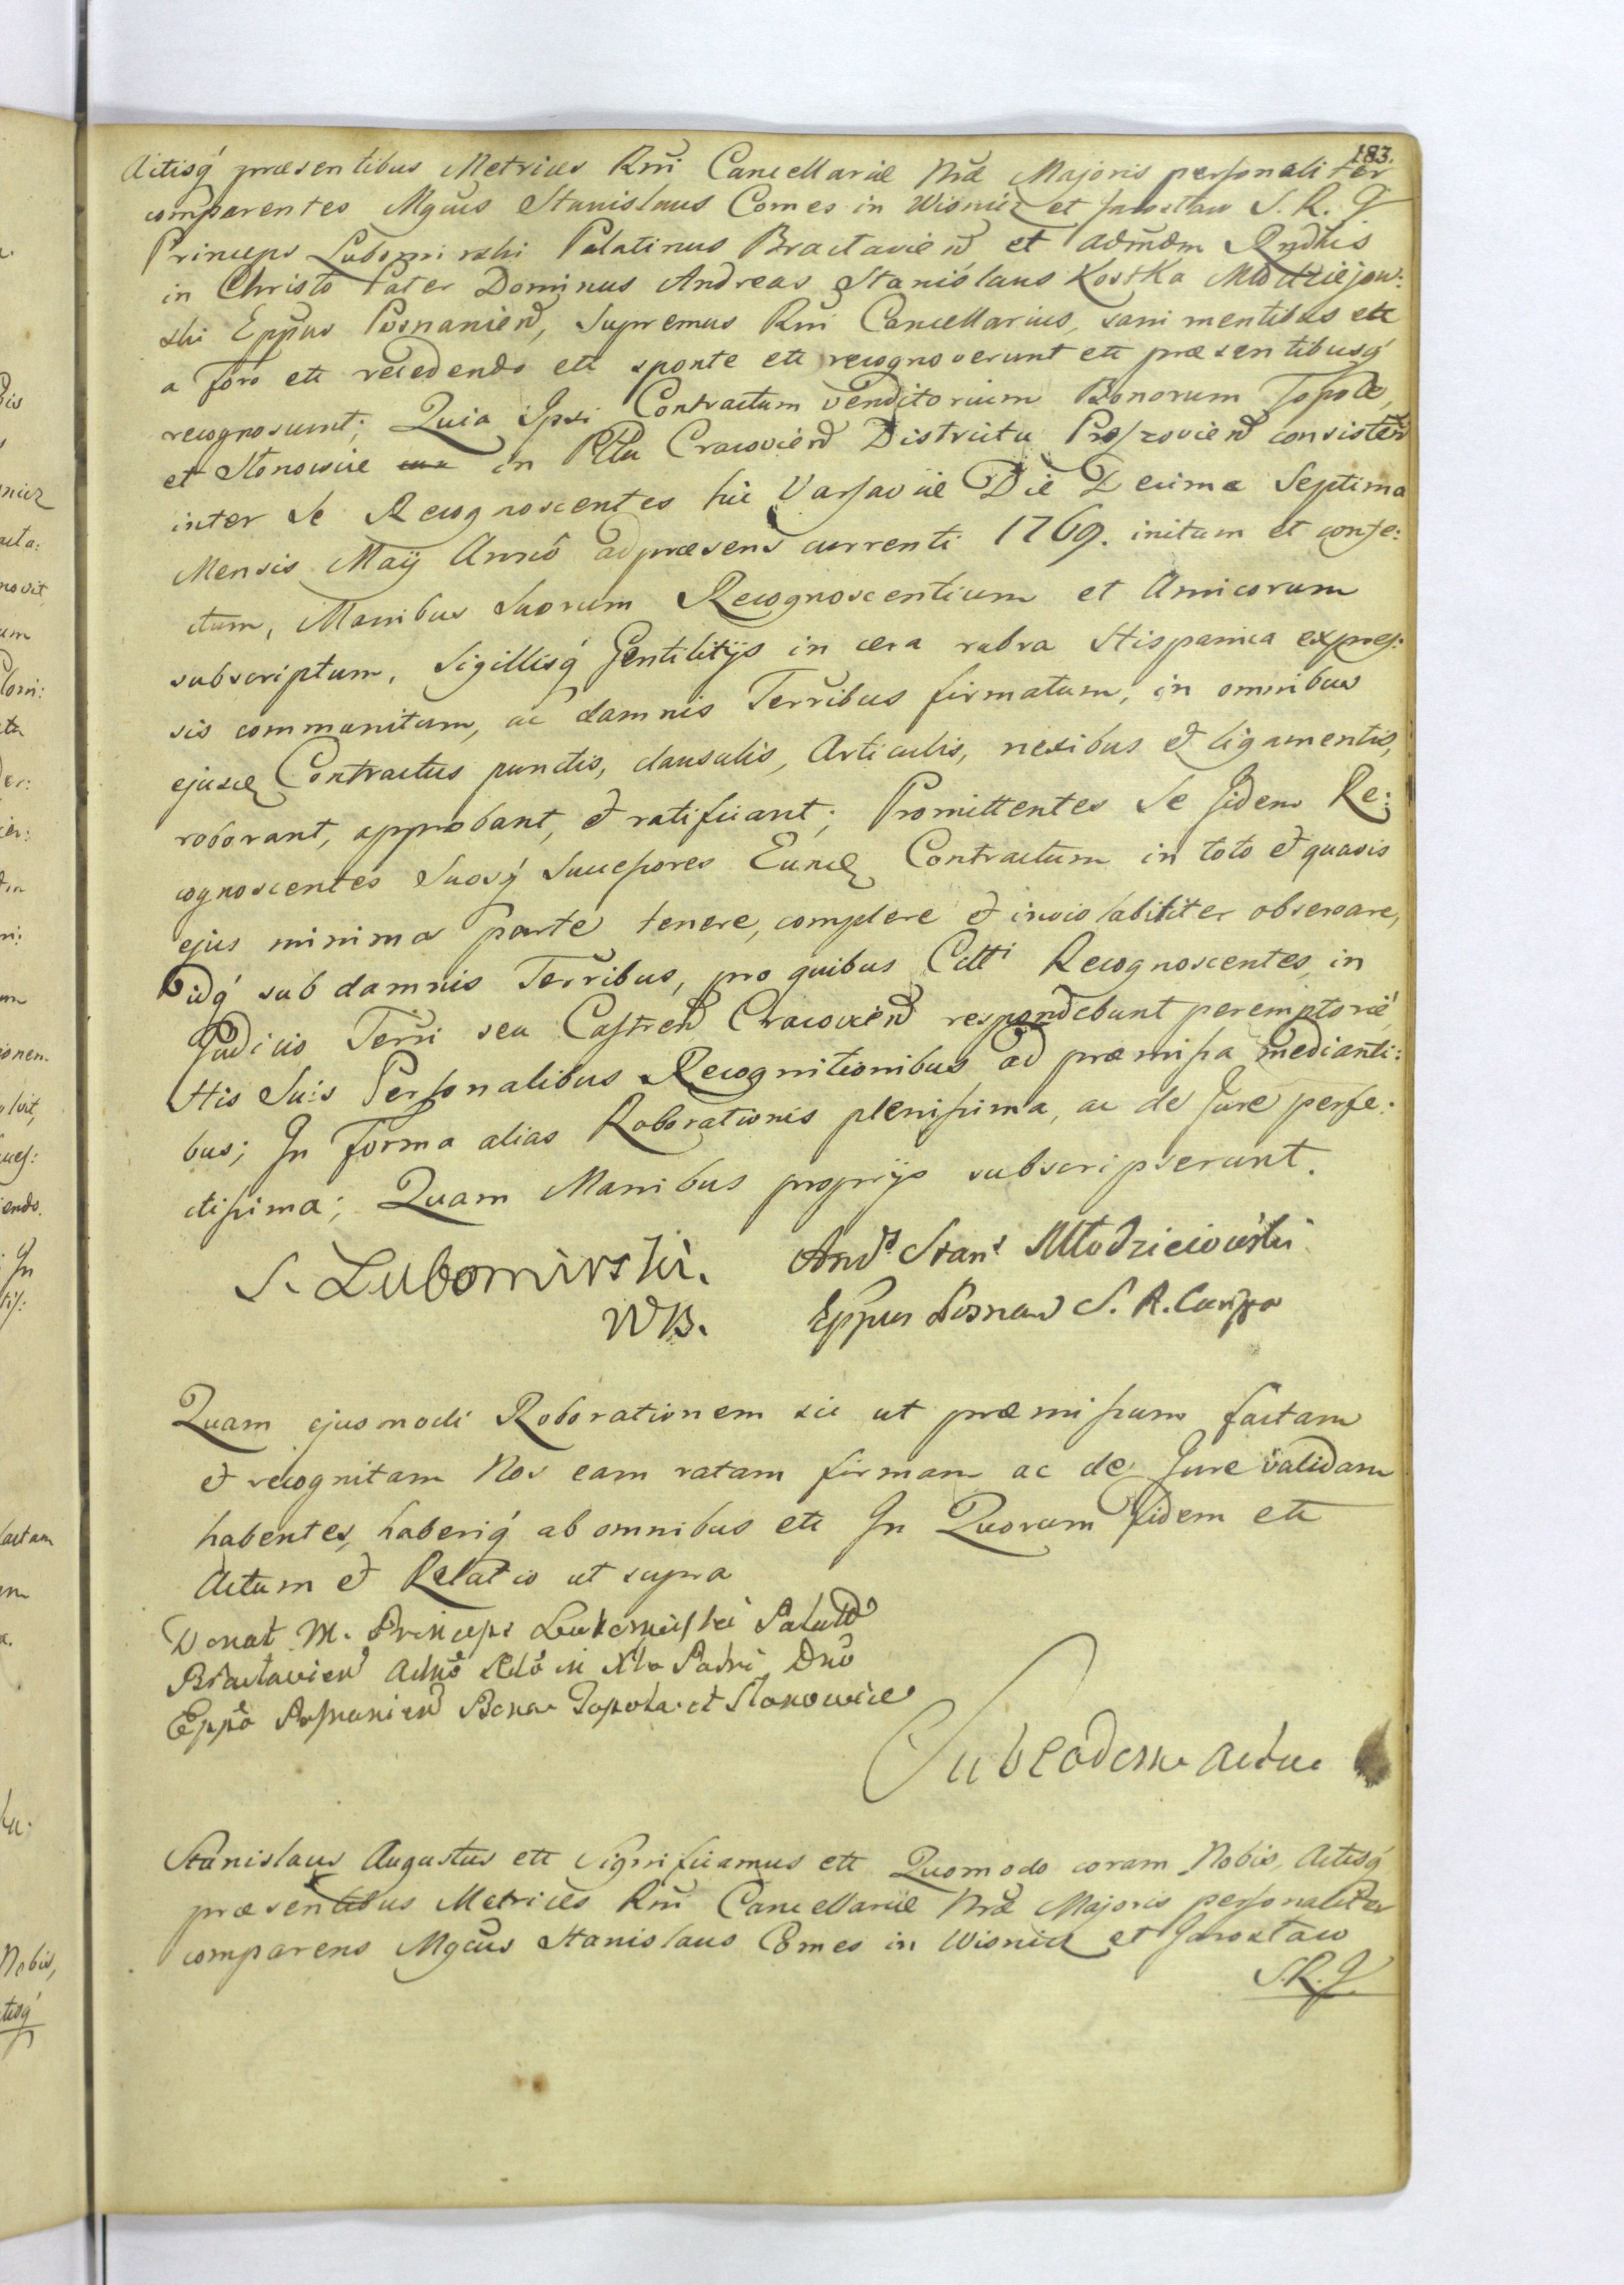 183.
Actisq́ præsentibus Metrices Rnĩ Cancellariæ Nræ̃ Majoris personaliter
comparentes Mgcus Stanislaus Comes in Wisnicz et Jarosław S. R. J.
Princeps Lubomirski Palatinus Braclavien̄ et admd̃m Rnd̃us
in Christo Pater Dominus Andreas Stanislaus Kostka Młodziejow:
ski Epp̃us Posnanien̄, Supremus Rnĩ Cancellarius, sani mentibus ett
a Foro ett recedendo ett sponte ett recognoverunt ett præsentibusq́
recognoscunt; Quia Ipsi Contractum venditorium Bonorum Topole,
et Słonowice in Pttu Cracovien̄ Districtu Proszovien̄ consisten̄
inter Se Recognoscentes hic Varsaviæ Die Decima Septima
Mensis Maÿ Annô ad præsens currenti 1769. initum et confe:
ctum, Manibus Suorum Recognoscentium et Amicorum
subscriptum, Sigillisq́ Gentilitÿs in cera rubra Hispanica expres:
sis communitum, ac damnis Terribus firmatum, in omnibus
ejusd Contractus punctis, clausulis, Articulis, nexibus et ligamentis,
roborant, approbant, et ratificant; Promittentes Se Jidem Re:
cognoscentes Suosq́ Successores Eund Contractum in toto et quavis
ejus minima parte tenere, complere et inviolabiliter observare,
idq́ sub damnis Terribus, pro quibus Citti Recognoscentes in
Judicio Terrĩ seu Castren̄ Cracovien̄ respondebunt peremptoriè
His Suis Personalibus Recognitionibus ad præmissa medianti:
bus; In Forma alias Roborationis plenissima, ac de Jure perfe:
ctissima; Quam Manibus proprÿs subscripserunt.
S. Lubomirski. Ands Stans Młodzieiowski
WB. Eppus Posnan S. R. Canrius
Quam ejusmodi Roborationem sic ut præmissum factam
et recognitam Nos eam ratam firmam ac de Jure validam
habentes, haberiq́ ab omnibus ett In Quorum Fidem ett
Actum et Relatio ut supra
Donat M. Princeps Lubomirski Palatt
Braclavien̄ Admõ Rdõ in Xto Patri Dnõ
Eppõ Posnanien̄ Bona Topola et Słonowice
Sub eodem Actu
Stanislaus Augustus ett Significamus ett Quomodo coram Nobis, Actisq́
præsentibus Metrices Rnĩ Cancellariæ Nræ̃ Majoris personaliter
comparens Mgcus Stanislaus Comes in Wisnicz et Jarosław
S.R.J.